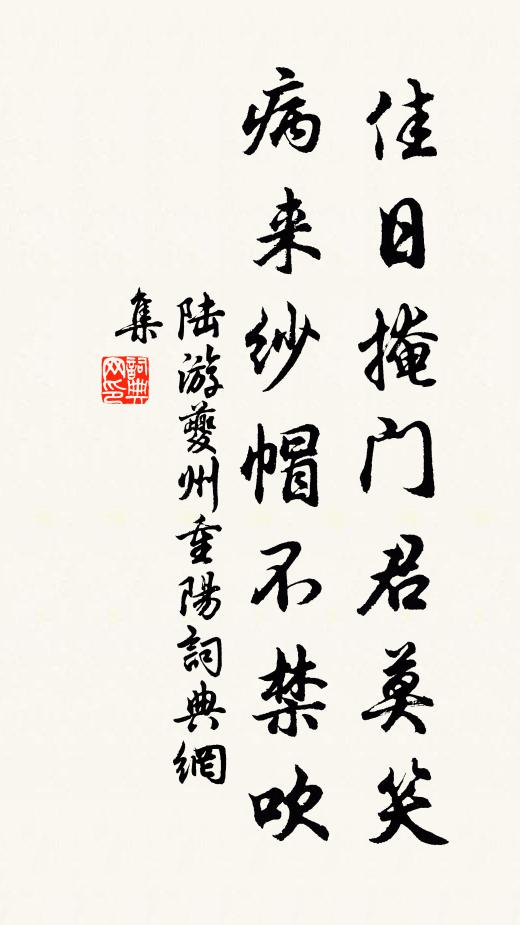 佳日掩门君莫笑
病来纱帽不禁吹
陆游夔州重陽詞典網
集
詞典
网印